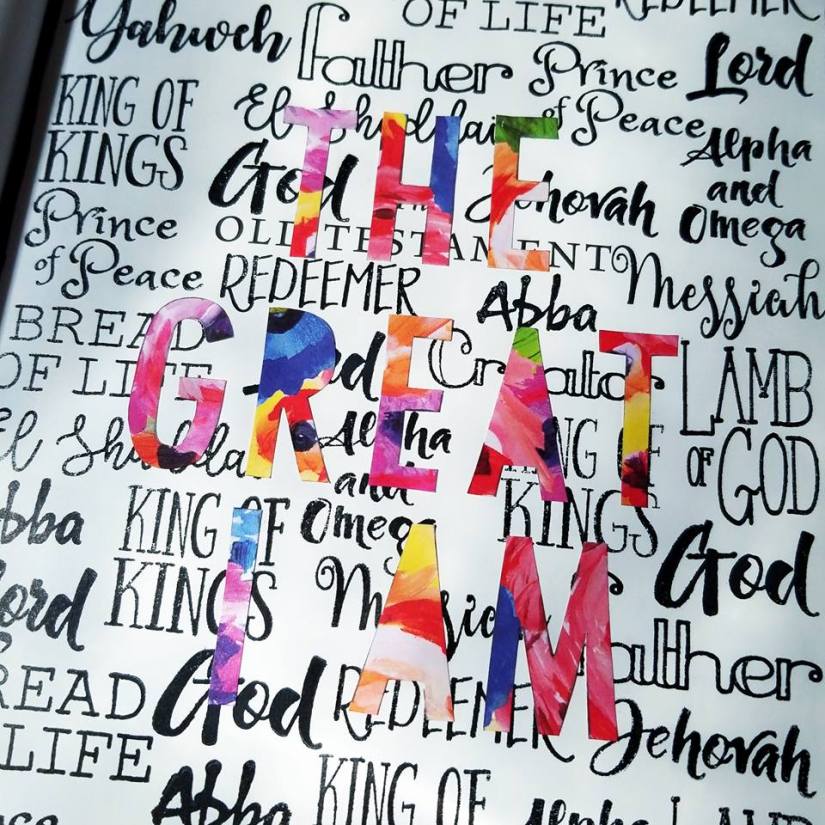 OF LIFE REDEEMER
Yahweh father Prince of Peace Lord
KING OF KINGS El Shaddai Alpha and Omega
God Jehovah
Prince of Peace OLD TESTAMENT
REDEEMER Abba Messiah
THE
BREAD OF LIFE Creator LAMB OF GOD
GREAT
El Shaddai Alpha and Omega KING OF KINGS
Abba KING OF KINGS God
I AM
Lord Messiah father
READ LIFE God REDEEMER Jehovah
Abba KING OF Alpha LAMB